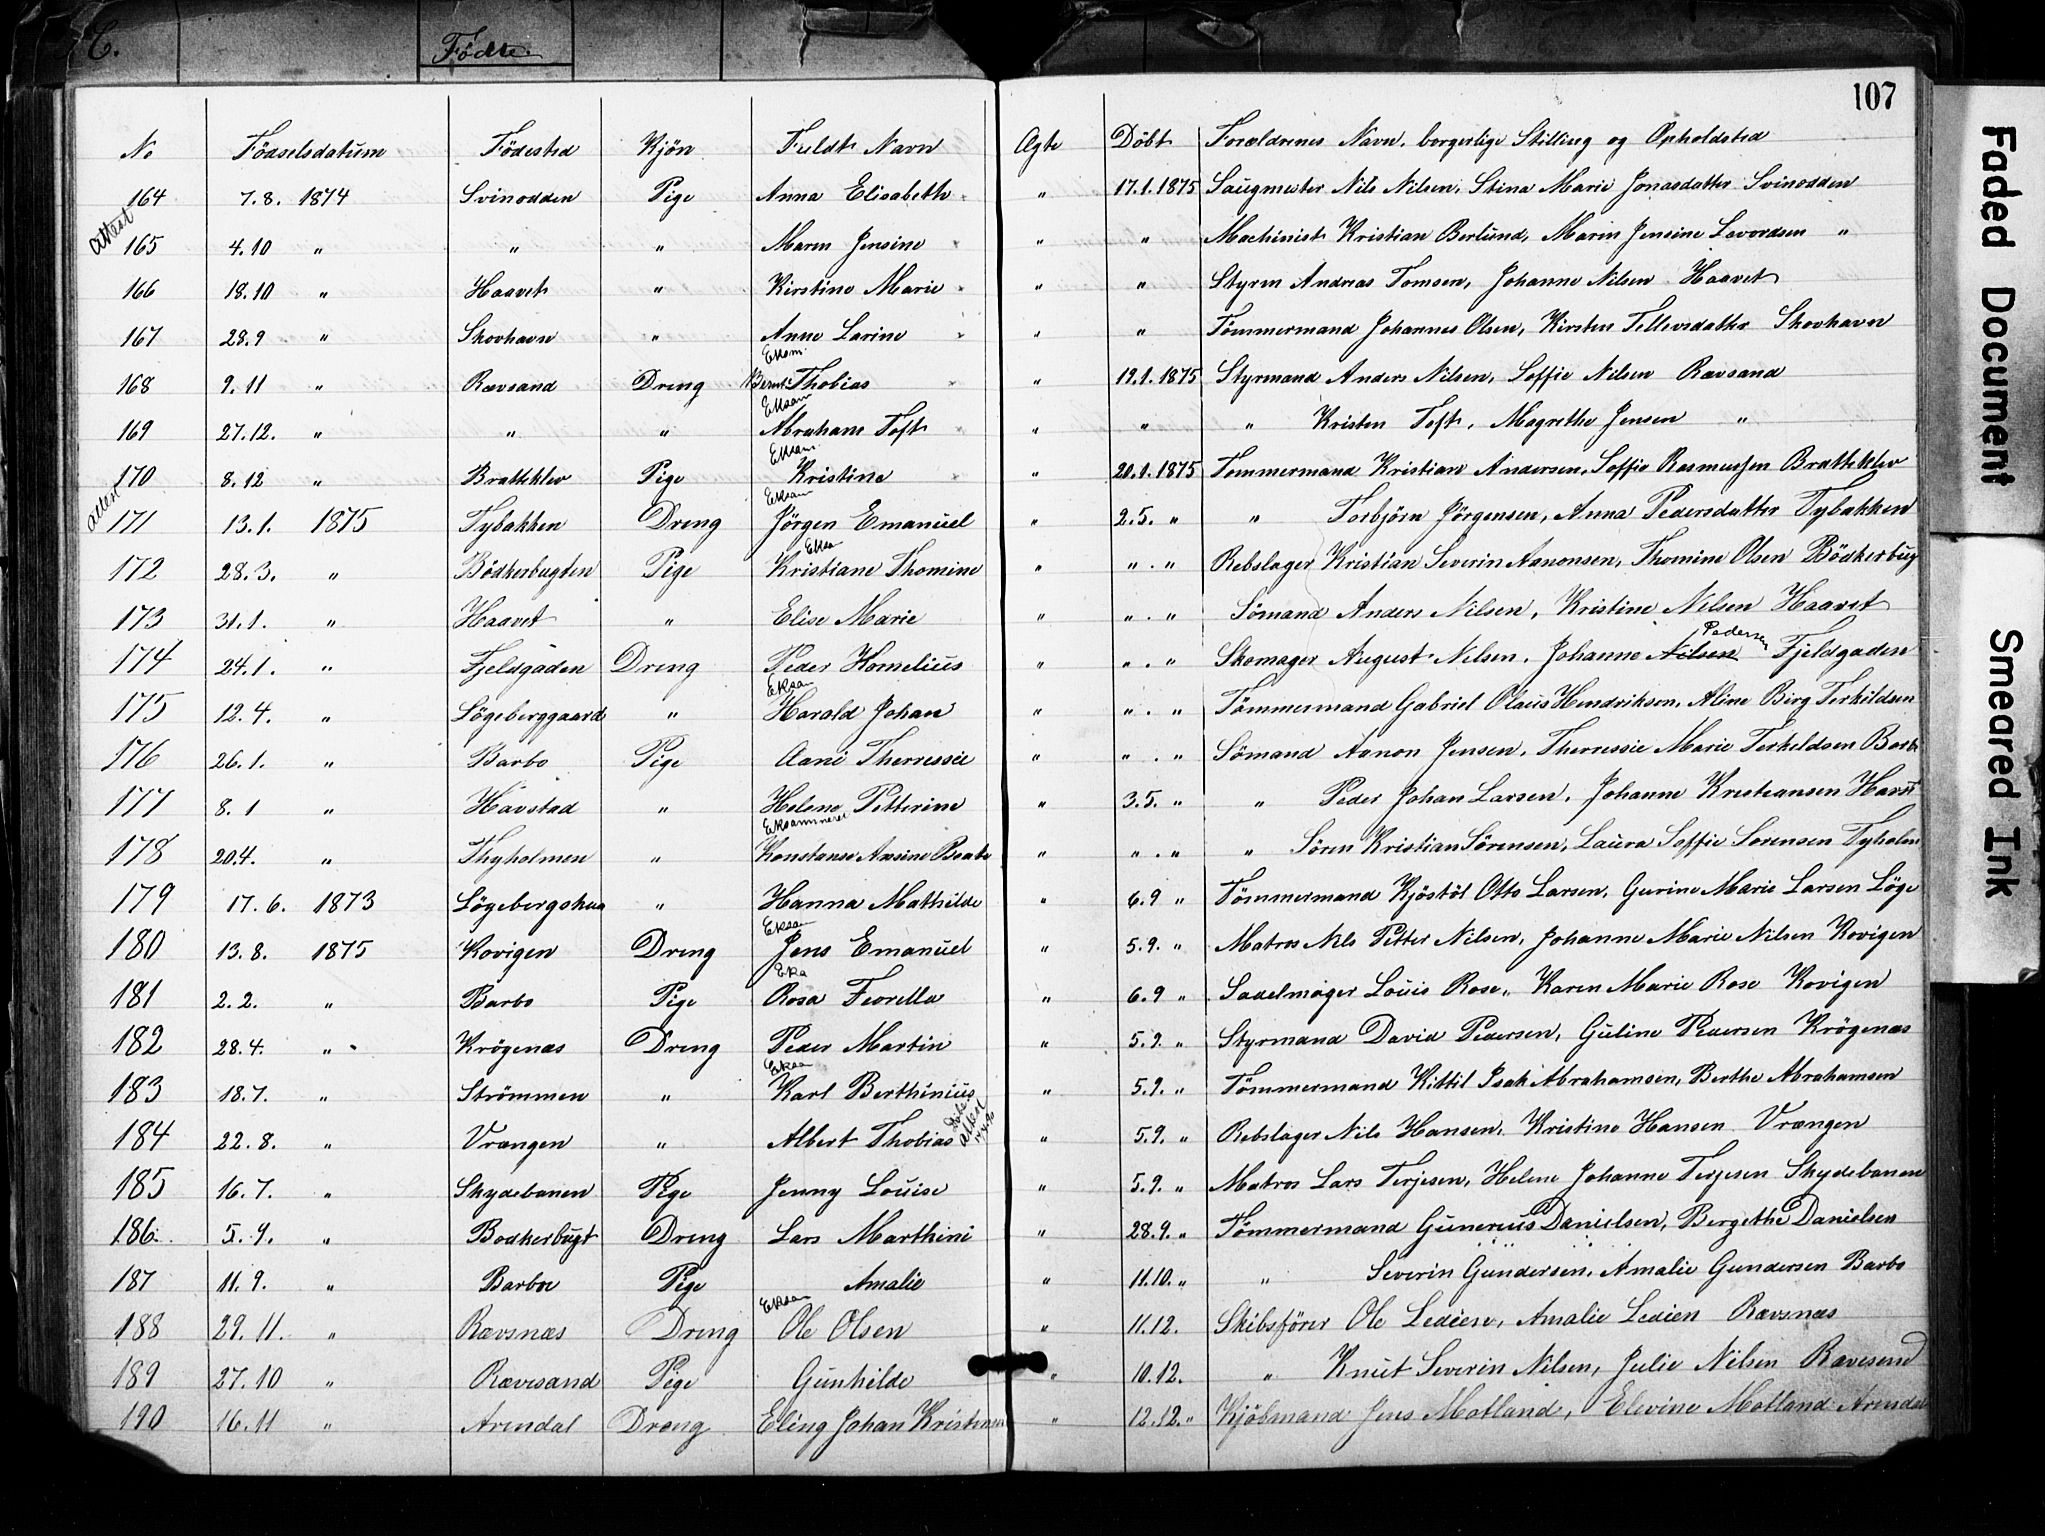 C. Fødte. 107
No Fødselsdatum Födested Kjön Fuldt Navn Ægte Döbt Forældrenes Navn, borgerlige Stilling og Opholdsted
164 7.8. 1874 Svinodden Pige Anna Elisabeth " 17.1.1875 Saugmester Nils Nilsen, Stina Marie Jonasdatter Svinodden
Attest 165 4.10 " " " Maren Jensine " " Machinist Kristian Berlund, Marin Jensine Lavordsen "
166 18.10 " Haavet " Kirstine Marie " " Styrm Andreas Tomsen, Johanne Nilsen Haavet
167 28.9 " Skovhavn " Anne Larine " " Tömmermand Johannes Olsen, Kirsten Tellevsdatter Skovhavn
Eksam
168 9.11 " Rævsand Dreng Bernt Thobias " 19.1.1875 Styrmand Anders Nilsen, Soffie Nilsen Rævsand
Eksam
169 27.12. " " " Abraham Toft " " " Kristen Toft, Magrethe Jensen "
Eksam
170 8.12 " Bratteklev Pige Kristine " 20.1.1875 Tommermand Kristian Andersen, Soffie Rasmussen Bratteklev
Eksam
Attest 171 13.1. 1875 Tybakken Dreng Jörgen Emanuel " 2.5. " " Torbjörn Jörgensen, Anna Pedersdatter Tybakken
Eksa
172 28.3. " Bödkerbugten Pige Kristiane Thomine " " . " Rebslager Kristian Severin Aanonsen, Thomine Olsen Bödkerbug
173 31.1. " Haavet " Elise Marie " " . " Sömand Anders Nilsen, Kristine Nilsen Haavet
Pedersen
174 24.1. " Fjeldgaden Dreng Peder Kornelius " " . " Skomager August Nilsen, Johanne Nilsen Fjeldgaden
Eksa
175 12.4. " Lögeberggaard " Harald Johan " " . " Tömmermand Gabriel Olaus Hendriksen, Aline Birg Terkildsen
176 26.1. " Barbo Pige Aani Therressie " " . " Sömand Aanon Jensen, Therressie Marie Terkeldsen Barb
177 8.1 " Havstad " Helene Petterine " 3.5. " " Peder Johan Larsen, Johanne Kristiansen Havst
Eksammneret
178 20.4. " Thyholmen " Konstanse Amsine Beate " " . " " Sören Kristian Sörensen, Laura Soffie Sorensen Tyholm
179 17.6. 1873 Lögebergshua " Hanna Mathilde " 6.9 " Tömmermand Kjöstöl Otto Larsen, Gurine Marie Larsen Löge
Eksa
180 13.8. 1875 Kovigen Dreng Jens Emanuel " 5.9. " Matros Nils Petter Nilsen, Johanne Marie Nilsen Kovigen
Eka
181 2.2. " Barbo Pige Rosa Fiorella " 6.9 " Sadelmager Louis Rose, Karen Marie Rose Kovigen
182 28.4. " Krögenæs Dreng Peder Martin " 5.9. " Styrmand David Pedersen, Guline Pedersen Krögenæs
Eksa
183 18.7. " Strömmen " Karl Berthinius " 5.9. " Tömmermand Kittil Isak Abrahamsen, Berthe Abrahamsen
184 22.8. " Vrængen " Albert Thobias attest " 5.9. " Rebslager Nils Hansen, Kristine Hansen Vrængen
185 16.7. " Skydebanen Pige Jenny Louise " 5.9. " Matros Lars Terjesen, Helene Johanne Terjesen Skydebanen
186 5.9. " Bodkerbugt Dreng Lars Marthini " 28.9. " Tömmermand Gunerius Danielsen, Bergethe Danielsen
187 11.9. " Barboe Pige Amalie " 11.10. " " Severin Gundersen, Amalie Gundersen Barbo
Eksam
188 29.11. " Rævsnæs Dreng Ole Olsen " 11.12. Skibsförer Ole Ledien, Amalie Ledien Rævsnæs
189 27.10 " Rævesand Pige Gunhilde " 10.12. " Knut Severin Nilsen, Julie Nilsen Rævesend
190 16.11 " Arendal Dreng Eling Johan Kristensen " 12.12. " Kjöbmand Jens Motland, Elevine Motland Arendal
Faded Document
Smeared Ink